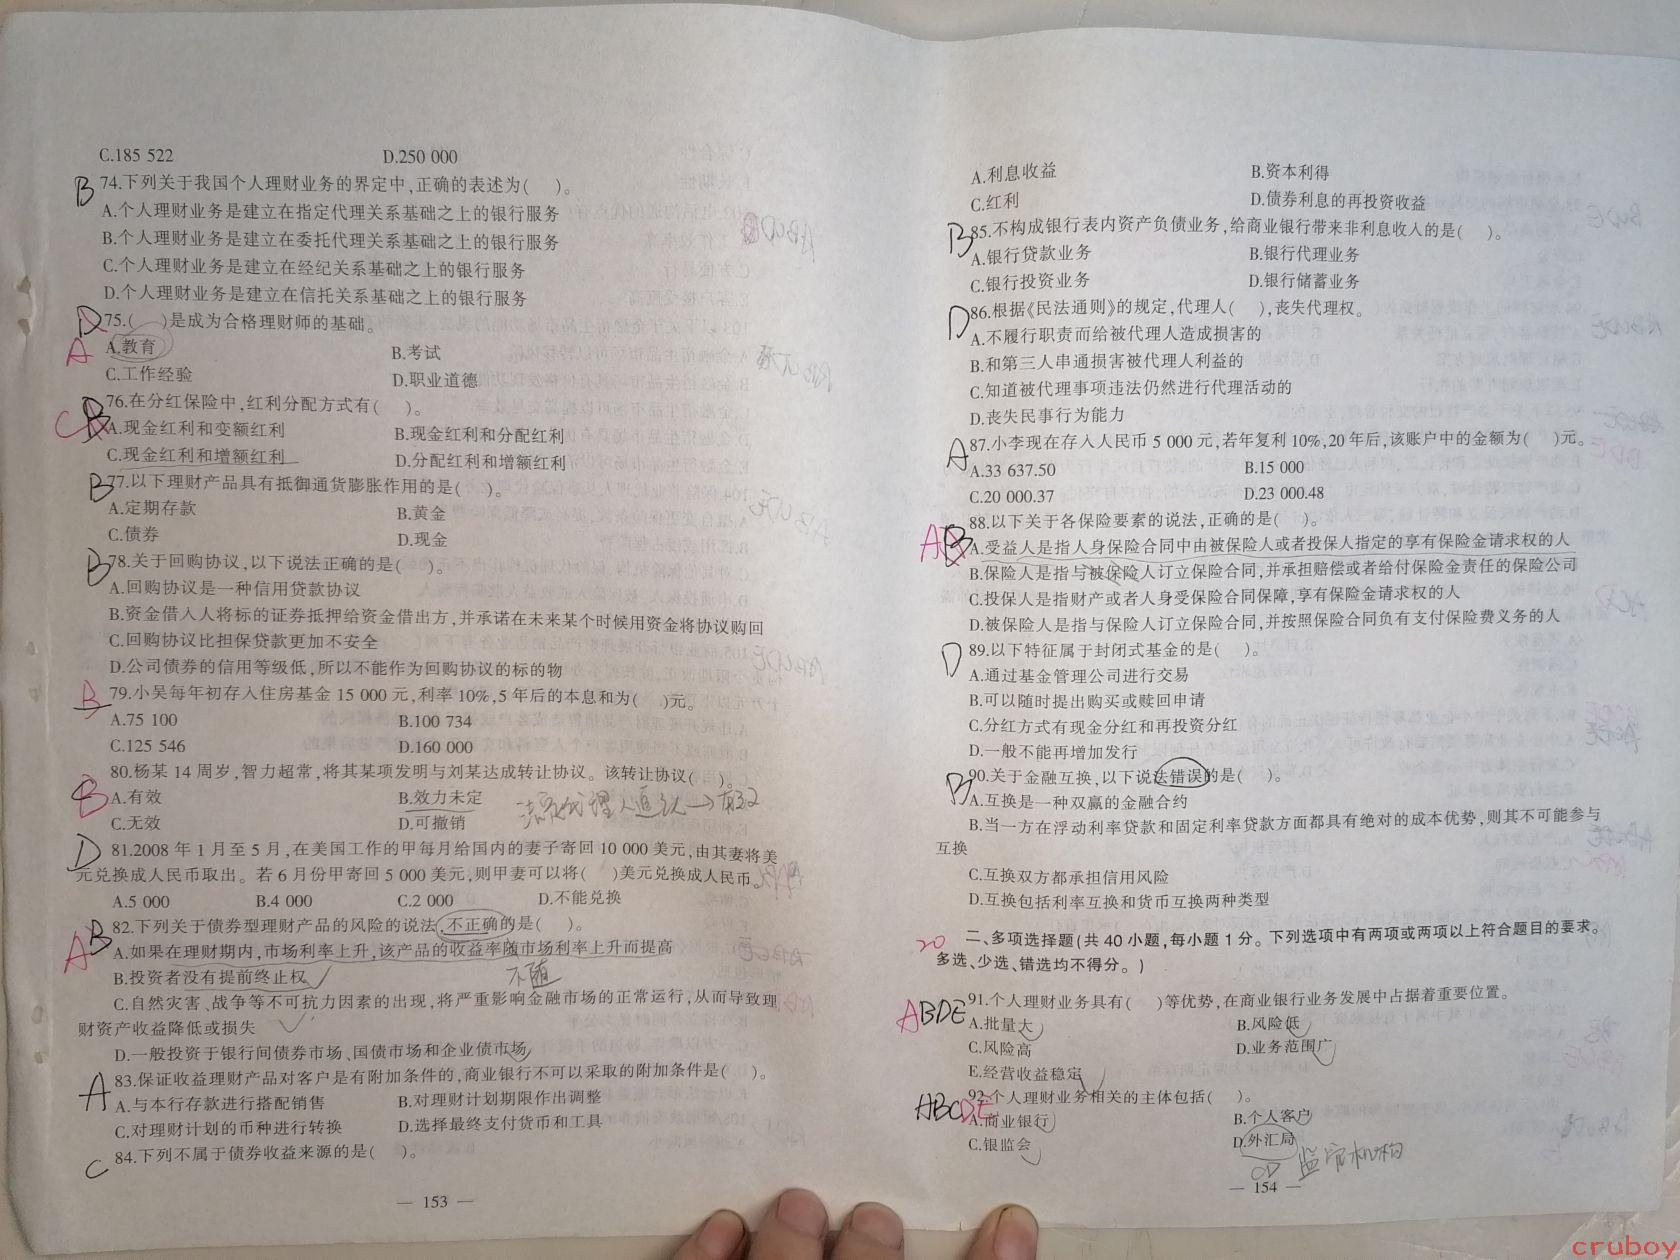 C.185 522 D.250 000
B 74.下列关于我国个人理财业务的界定中,正确的表述为( )。
A.个人理财业务是建立在指定代理关系基础之上的银行服务
B.个人理财业务是建立在委托代理关系基础之上的银行服务
C.个人理财业务是建立在经纪关系基础之上的银行服务
D.个人理财业务是建立在信托关系基础之上的银行服务
D 75.( )是成为合格理财师的基础。
A A.教育 B.考试
C.工作经验 D.职业道德
C 76.在分红保险中,红利分配方式有( )。
A.现金红利和变额红利 B.现金红利和分配红利
C.现金红利和增额红利 D.分配红利和增额红利
B 77.以下理财产品具有抵御通货膨胀作用的是( )。
A.定期存款 B.黄金
C.债券 D.现金
B 78.关于回购协议,以下说法正确的是( )。
A.回购协议是一种信用贷款协议
B.资金借入人将标的证券抵押给资金借出方,并承诺在未来某个时候用资金将协议购回
C.回购协议比担保贷款更加不安全
D.公司债券的信用等级低,所以不能作为回购协议的标的物
B 79.小吴每年初存入住房基金 15 000 元,利率 10%,5 年后的本息和为( )元。
A.75 100 B.100 734
C.125 546 D.160 000
80.杨某 14 周岁,智力超常,将其某项发明与刘某达成转让协议。该转让协议( )。
B A.有效 B.效力未定
C.无效 D.可撤销
法定代理人追认→有效
D 81.2008 年 1 月至 5 月,在美国工作的甲每月给国内的妻子寄回 10 000 美元,由其妻将美
元兑换成人民币取出。若 6 月份甲寄回 5 000 美元,则甲妻可以将( )美元兑换成人民币。
A.5 000 B.4 000 C.2 000 D.不能兑换
AB 82.下列关于债券型理财产品的风险的说法,不正确的是( )。
A.如果在理财期内,市场利率上升,该产品的收益率随市场利率上升而提高
B.投资者没有提前终止权 不随
C.自然灾害、战争等不可抗力因素的出现,将严重影响金融市场的正常运行,从而导致理
财资产收益降低或损失
D.一般投资于银行间债券市场、国债市场和企业债市场
A 83.保证收益理财产品对客户是有附加条件的,商业银行不可以采取的附加条件是( )。
A.与本行存款进行搭配销售 B.对理财计划期限作出调整
C.对理财计划的币种进行转换 D.选择最终支付货币和工具
C 84.下列不属于债券收益来源的是( )。
— 153 —
A.利息收益 B.资本利得
C.红利 D.债券利息的再投资收益
B 85.不构成银行表内资产负债业务,给商业银行带来非利息收入的是( )。
A.银行贷款业务 B.银行代理业务
C.银行投资业务 D.银行储蓄业务
D 86.根据《民法通则》的规定,代理人( ),丧失代理权。
A.不履行职责而给被代理人造成损害的
B.和第三人串通损害被代理人利益的
C.知道被代理事项违法仍然进行代理活动的
D.丧失民事行为能力
A 87.小李现在存入人民币 5 000 元,若年复利 10%,20 年后,该账户中的金额为( )元。
A.33 637.50 B.15 000
C.20 000.37 D.23 000.48
88.以下关于各保险要素的说法,正确的是( )。
AB A.受益人是指人身保险合同中由被保险人或者投保人指定的享有保险金请求权的人
B.保险人是指与被保险人订立保险合同,并承担赔偿或者给付保险金责任的保险公司
C.投保人是指财产或者人身受保险合同保障,享有保险金请求权的人
D.被保险人是指与保险人订立保险合同,并按照保险合同负有支付保险费义务的人
D 89.以下特征属于封闭式基金的是( )。
A.通过基金管理公司进行交易
B.可以随时提出购买或赎回申请
C.分红方式有现金分红和再投资分红
D.一般不能再增加发行
B 90.关于金融互换,以下说法错误的是( )。
A.互换是一种双赢的金融合约
B.当一方在浮动利率贷款和固定利率贷款方面都具有绝对的成本优势,则其不可能参与
互换
C.互换双方都承担信用风险
D.互换包括利率互换和货币互换两种类型
20 二、多项选择题(共 40 小题,每小题 1 分。下列选项中有两项或两项以上符合题目的要求。
多选、少选、错选均不得分。)
ABDE 91.个人理财业务具有( )等优势,在商业银行业务发展中占据着重要位置。
A.批量大 B.风险低
C.风险高 D.业务范围广
E.经营收益稳定
ABCDE 92.个人理财业务相关的主体包括( )。
A.商业银行 B.个人客户
C.银监会 D.外汇局
CD 监官机构
— 154 —
cruboy